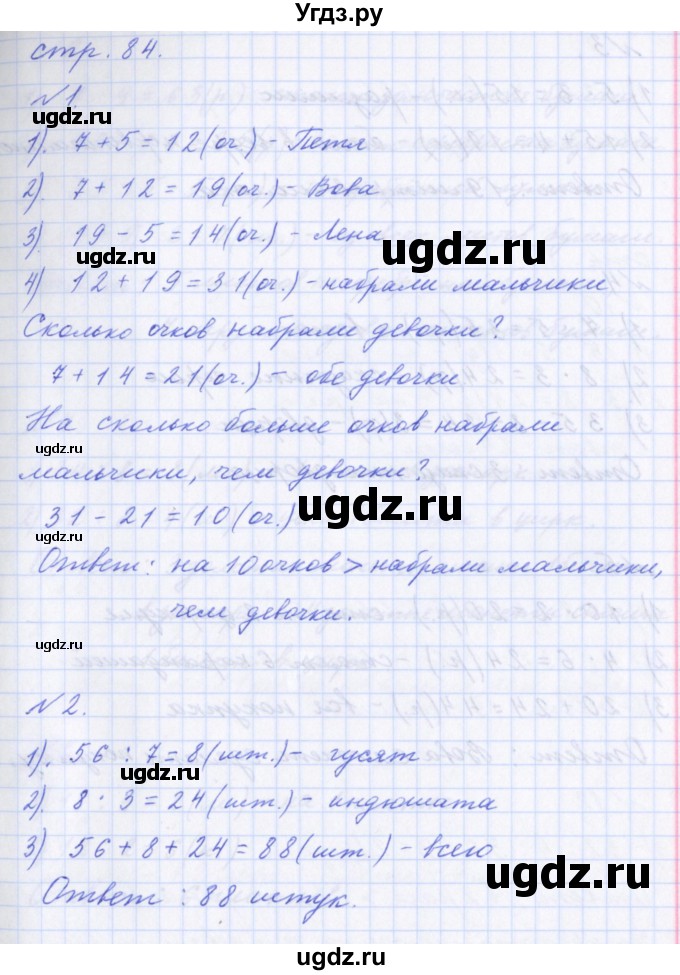 Угдз.ру
стр. 84.
№1.
1). 7 + 5 = 12 (оч.) - Петя
2). 7 + 12 = 19 (оч.) - Вова
3) 19 - 5 = 14 (оч.) - Лена
4) 12 + 19 = 31 (оч.) - набрали мальчики
Сколько очков набрали девочки?
7 + 14 = 21 (оч.) - обе девочки
На сколько больше очков набрали
мальчики, чем девочки?
31 - 21 = 10 (оч.)
Ответ: на 10 очков > набрали мальчики,
чем девочки.
№2.
1). 56 : 7 = 8 (шт.) - гусят
2). 8 · 3 = 24 (шт.) - индюшата
3) 56 + 8 + 24 = 88 (шт.) - всего
Ответ : 88 штук.
ugdz.ru
ugdz.ru
ugdz.ru
ugdz.ru
ugdz.ru
ugdz.ru
ugdz.ru
ugdz.ru
ugdz.ru
ugdz.ru
ugdz.ru
ugdz.ru